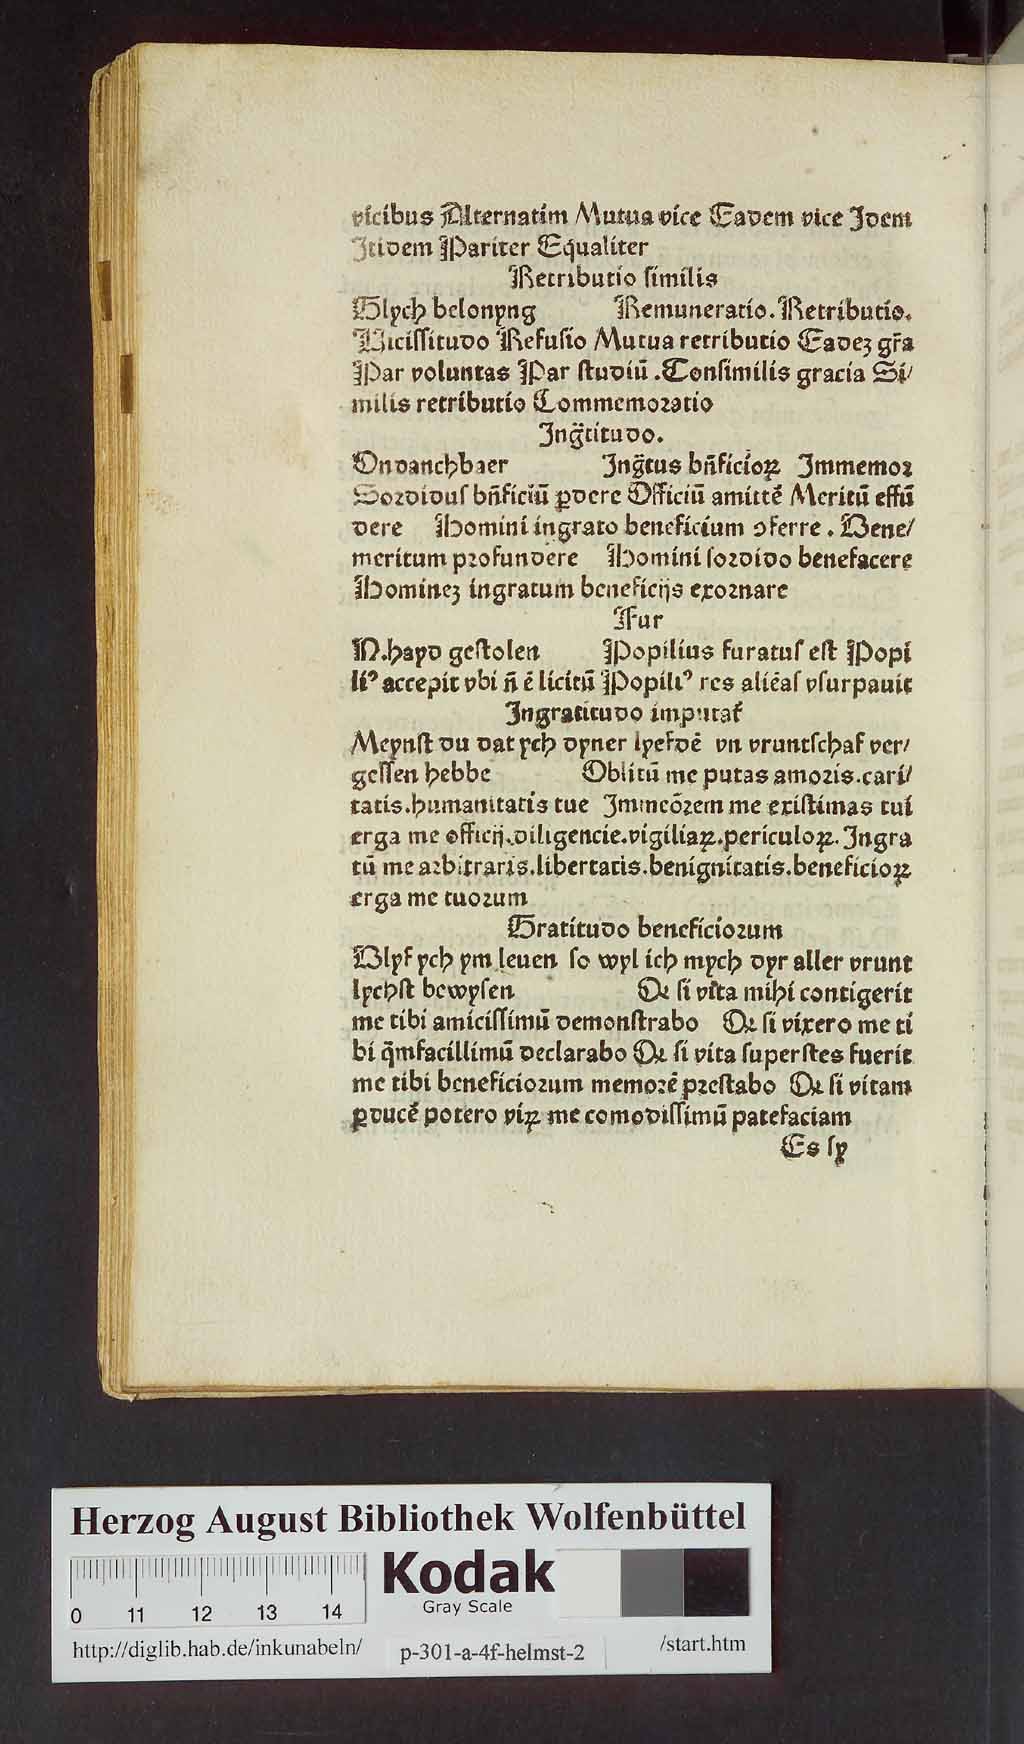 vicibus Alternatim Mutua vice Eadem vice Idem
Itidem Pariter Eq̄ualiter
Retributio similis
Glych belonyng Remuneratio. Retributio.
Vicissitudo Refusio Mutua retributio Eadeʒ gr̄a
Par voluntas Par studiū .Consimilis gracia Si/
milis retributio Commemoratio
Ingᷓtitudo.
Ondanchbaer Ingᷓtus bn̄ficioꝝ Immemor
Sordidus bn̄ficiū ꝑdere Officiū amittē Meritū effū
dere Homini ingrato beneficium ꝯferre . Bene/
meritum profundere Homini sordido benefacere
Homineʒ ingratum beneficijs exornare
Fur
N.hayd gestolen Popilius furatus est Popi
liꝰ accepit vbi n̄ ē licitū Popiliꝰ res aliēas vsurpauit
Ingratitudo imputat᷑
Meynst du dat ych dyner lyefdē vn vruntschaf ver/
gessen hebbe Oblitū me putas amoris.cari/
tatis.humanitatis tue Immeōrem me existimas tui
erga me officij.diligencie.vigiliaꝝ.periculoꝝ. Ingra
tū me arbitraris.libertatis.benignitatis.beneficioꝝ
erga me tuorum
Gratitudo beneficiorum
Blyf ych ym leuen so wyl ich mych dyr aller vrunt
lychst bewysen Et si vita mihi contigerit
me tibi amicissimū demonstrabo Et si vixero me ti
bi q̄mfacillimū declarabo Et si vita superstes fuerit
me tibi beneficiorum memorē prestabo Et si vitam
ꝑducē potero viꝝ me comodissimū patefaciam
Es sy
Herzog August Bibliothek Wolfenbüttel
Kodak
Gray Scale
0 11 12 13 14
http://diglib.hab.de/inkunabeln/ p-301-a-4f-helmst-2 /start.htm